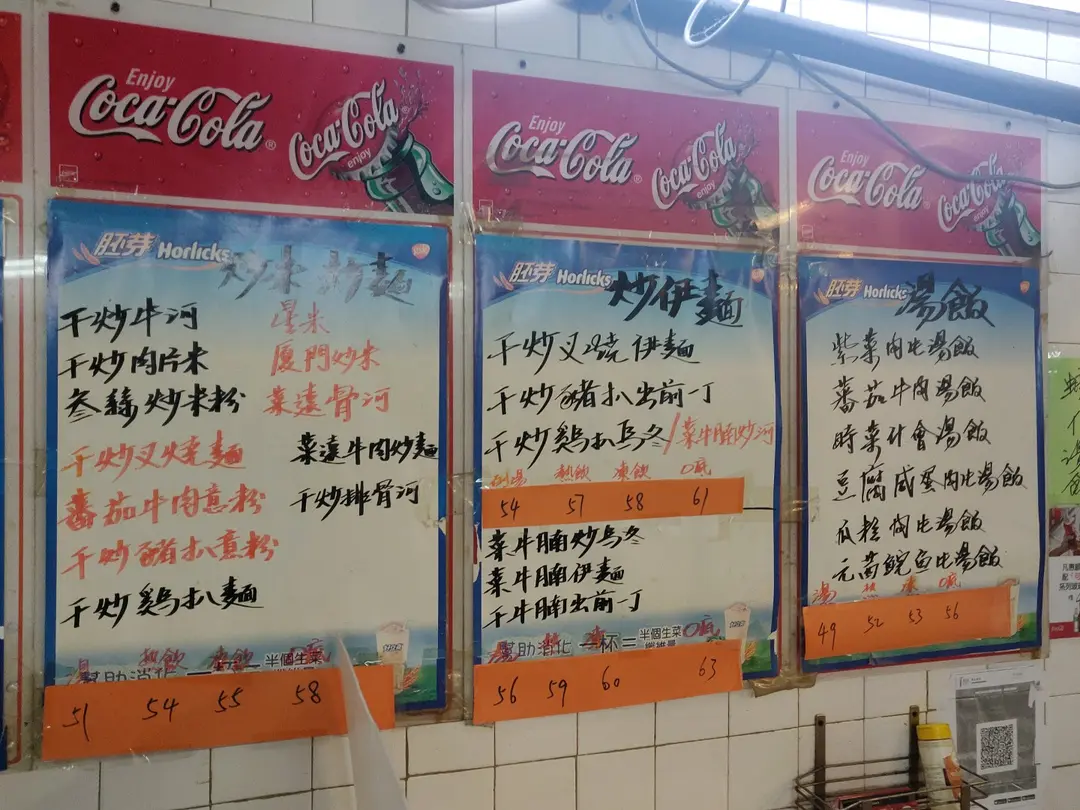 Enjoy
Coca-Cola
Coca-Cola
enjoy
胚芽 Horlicks
炒米粉麵
干炒牛河 星米
干炒肉片米 厦門炒米
叁絲炒米粉 菜遠骨河
干炒叉燒麵 菜遠牛肉炒麵
番茄牛肉意粉 干炒排骨河
干炒豬扒意粉
干炒鷄扒麵
湯 熱飲 凍飲 底
51 54 55 58
Enjoy
Coca-Cola
Coca-Cola
enjoy
胚芽 Horlicks
炒伊麵
干炒叉燒伊麵
干炒豬扒出前一丁
干炒鷄扒烏冬/菜牛腩炒河
例湯 熱飲 凍飲 O底
54 57 58 61
菜牛腩炒烏冬
菜牛腩伊麵
干牛腩出前一丁
幫助消化 一杯=半個生菜
湯 熱 凍 O底
56 59 60 63
Enjoy
Coca-Cola
Coca-Cola
胚芽 Horlicks
湯飯
紫菜肉片湯飯
番茄牛肉湯飯
時菜什會湯飯
豆腐咸蛋肉片湯飯
瓜粒肉片湯飯
元茜鯇魚片湯飯
湯 熱 凍 O底
49 52 53 56